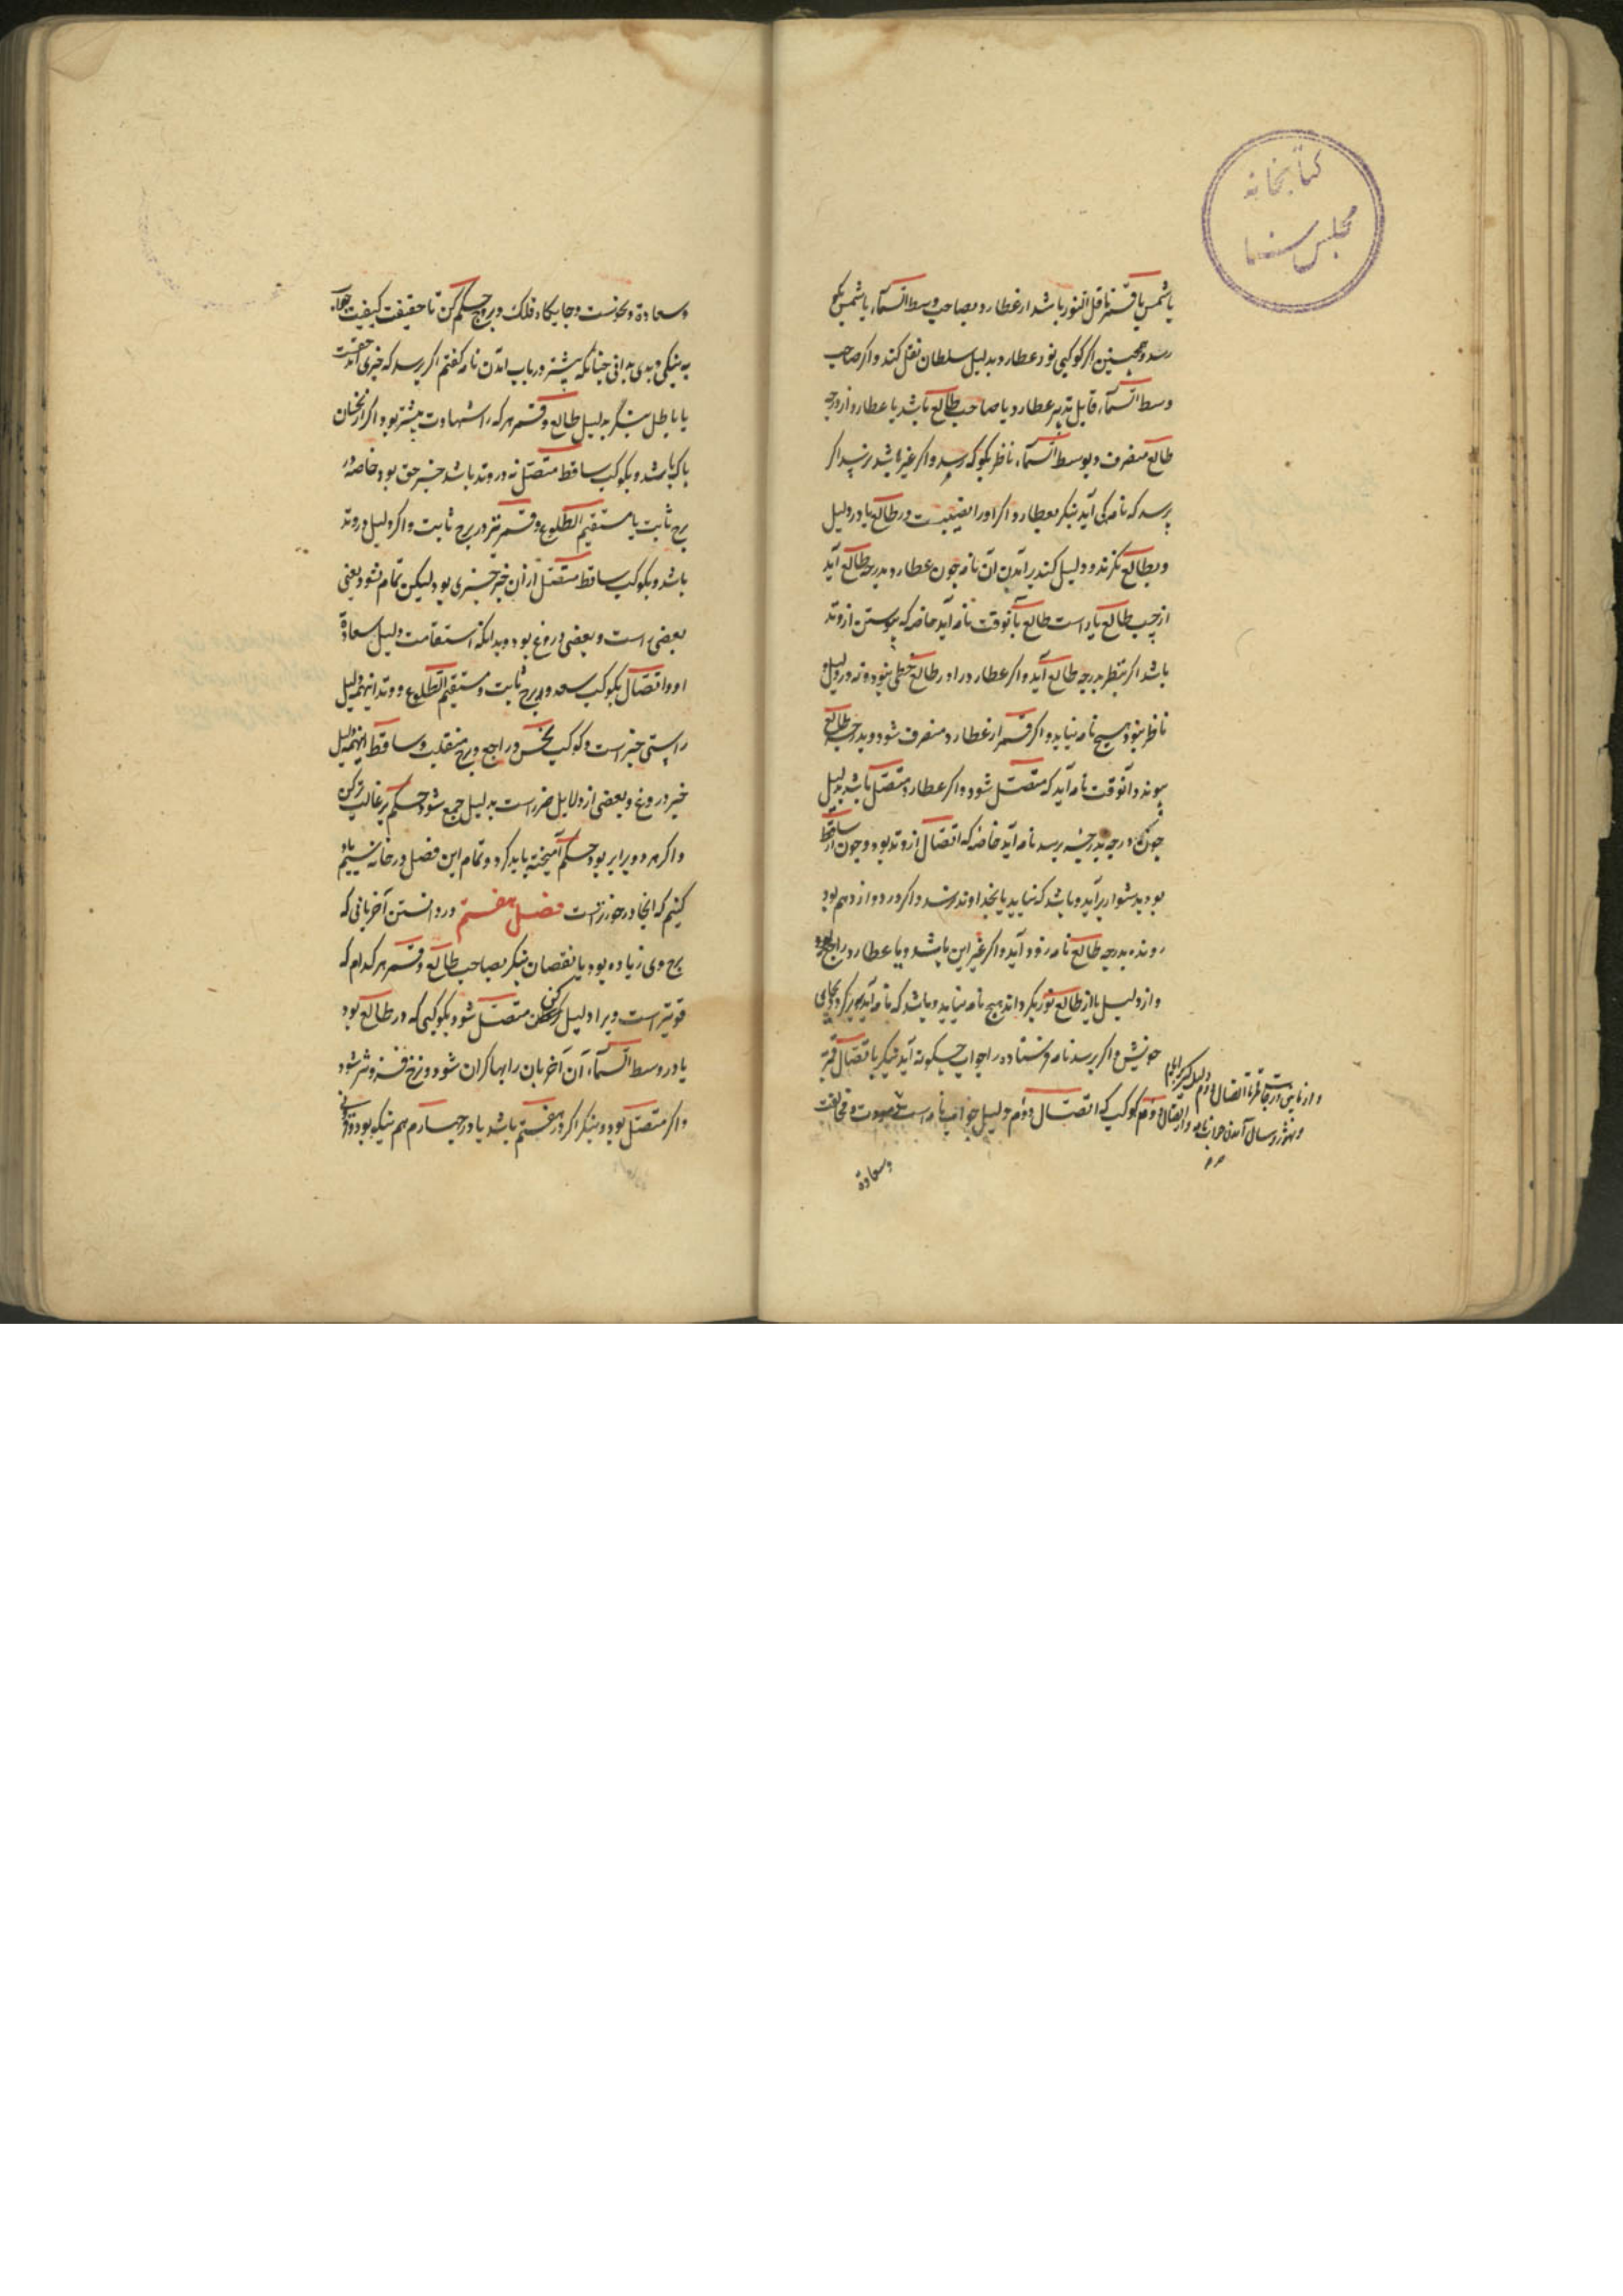 کتابخانه
مجلس سنا
یا شمس یا قمر ناقل النور باشد از عطارد و بصاحب وسط السماء یا شمس نکو
رسد و همچنین اگر کوکبی نور عطارد بدلیل سلطان نقل کند و اگر صاحب
وسط السماء قابل تدبیر عطارد یا صاحب طالع باشد یا عطارد از درجه
طالع منصرف و بوسط السماء ناظر بگو که رسد و اگر غیر باشد نرسد اگر
پرسد که نامه کی آید بنگر بعطارد اگر او را نصیبست در طالع یا در دلیل
و بطالع نگرنده دلیل کند بر آمدن آن نامه چون عطارد بدرجه طالع آید
از چپ طالع یا راست طالع بآنوقت نامه آید خاصه که پیوستن از وتد
باشد اگر بنظر بدرجه طالع آید و اگر عطارد را در طالع حظی نبود و نه در دلیل و
ناظر نبود هیچ نامه نیاید و اگر قمر از عطارد منصرف شود و بدرجه طالع
پیوندد آنوقت نامه آید که متصل شود و اگر عطارد متصل باشد بدلیل
چون درجه بدرجه برسد نامه آید خاصه که اتصال از وتد بود و چون از ساقط
بود بدشوار برآید و باشد که نیاید یا بخداوند نرسد و اگر در دوازدهم بود
رونده بدرجه طالع نامه زود آید و اگر غیر این باشد و یا عطارد راجع بود
و از دلیل یا از طالع نور بگرداند هیچ نامه نیاید و باشد که نامه آید و بازگردد بجای
خویش و اگر پرسد نامه فرستاده را جواب چگونه آید بنگر باتصال قمر
کوکب که اتصال دوم دلیل جواب نامه است
و سعادة
و سعادة و نحوست و جایگاه فلک و بروج حکم کن تا حقیقت کیفیت جواب
به نیکی و بدی بدانی چنانکه پیشتر در باب آمدن نامه گفتم اگر پرسد که خبری آمد حقست
یا باطل بنگر بدلیل طالع و قمر هر که را شهادت بیشتر بود و اگر از نحسان
پاک باشد و بکوکب ساقط متصل نه در وتد باشد خبر حق بود خاصه در
برج ثابت یا مستقیم الطلوع و قمر نیز در برج ثابت و اگر دلیل در وتد
باشد و بکوکب ساقط متصل از آن خبر چیزی بود لیکن تمام نشود یعنی
بعضی راست و بعضی دروغ بود و بدانکه استقامت دلیل سعادة
او و اتصال بکوکب سعد و برج ثابت و مستقیم الطلوع و وتد اینهمه دلیل
راستی خبر است و کوکب نحس و راجع و برج منقلب و ساقط اینهمه دلیل
خبر دروغ و بعضی از دلایل خبر راست بدلیل جمع شود حکم بر غالب‌تر کن
و اگر هر دو برابر بود حکم آمیخته باید کرد و تمام این فصل در خانه سیم یاد
کنیم که آنجا در خورتر است فصل هفتم در دانستن آخریانی که
نرخ وی زیاده بود یا نقصان بنگر بصاحب طالع و قمر هر کدام که
قویتر است ویرا دلیل کن متصل شود بکوکبی که در طالع بود
یا در وسط السماء آن آخریان را بها گران شود و نرخ فزونتر شود
و اگر متصل بود و بنگر اگر در هفتم باشد یا در چهارم هم نیکو بود